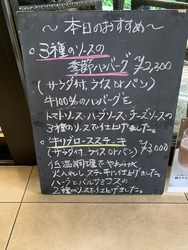 ～本日のおすすめ～
○3種のソースの
季節ハンバーグ ¥2,300
(サラダ付、ライスorパン)
牛100%のハンバーグを
トマトソース、ハーブソース、チーズソースの
3種のソースで仕上げました。
○牛リブロースステーキ ¥3,000
(サラダ付、ライスorパン)
低温調理でやわらかく
火入れし、ステーキに仕上げました。
ハーブとバルサミコスの
2種のソースで仕上げました。